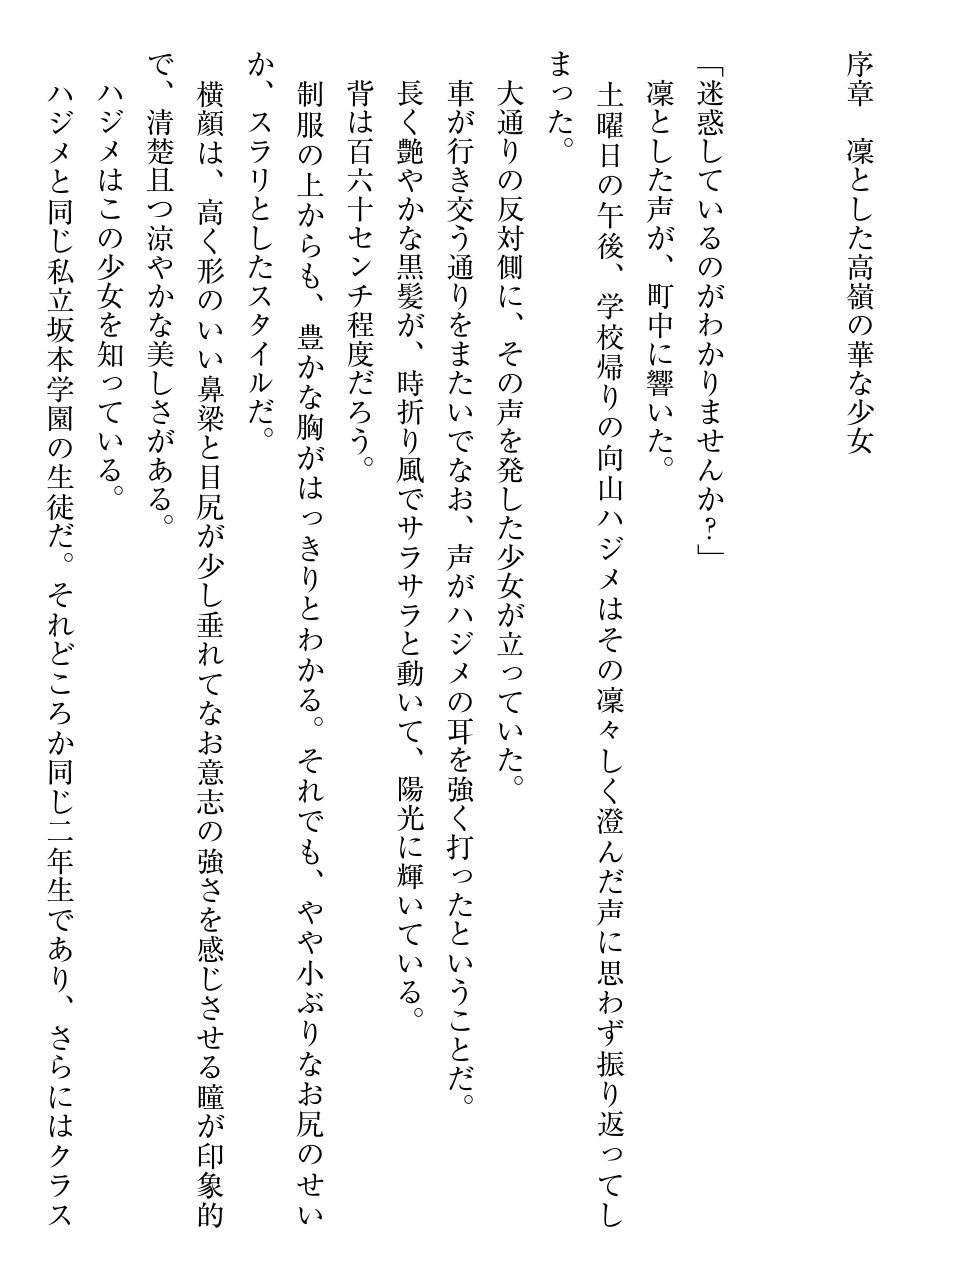 序章　凜とした高嶺の華な少女
「迷惑しているのがわかりませんか？」
　凜とした声が、町中に響いた。
　土曜日の午後、学校帰りの向山ハジメはその凜々しく澄んだ声に思わず振り返ってし
まった。
　大通りの反対側に、その声を発した少女が立っていた。
　車が行き交う通りをまたいでなお、声がハジメの耳を強く打ったということだ。
　長く艶やかな黒髪が、時折り風でサラサラと動いて、陽光に輝いている。
　背は百六十センチ程度だろう。
　制服の上からも、豊かな胸がはっきりとわかる。それでも、やや小ぶりなお尻のせい
か、スラリとしたスタイルだ。
　横顔は、高く形のいい鼻梁と目尻が少し垂れてなお意志の強さを感じさせる瞳が印象的
で、清楚且つ涼やかな美しさがある。
　ハジメはこの少女を知っている。
　ハジメと同じ私立坂本学園の生徒だ。それどころか同じ二年生であり、さらにはクラス